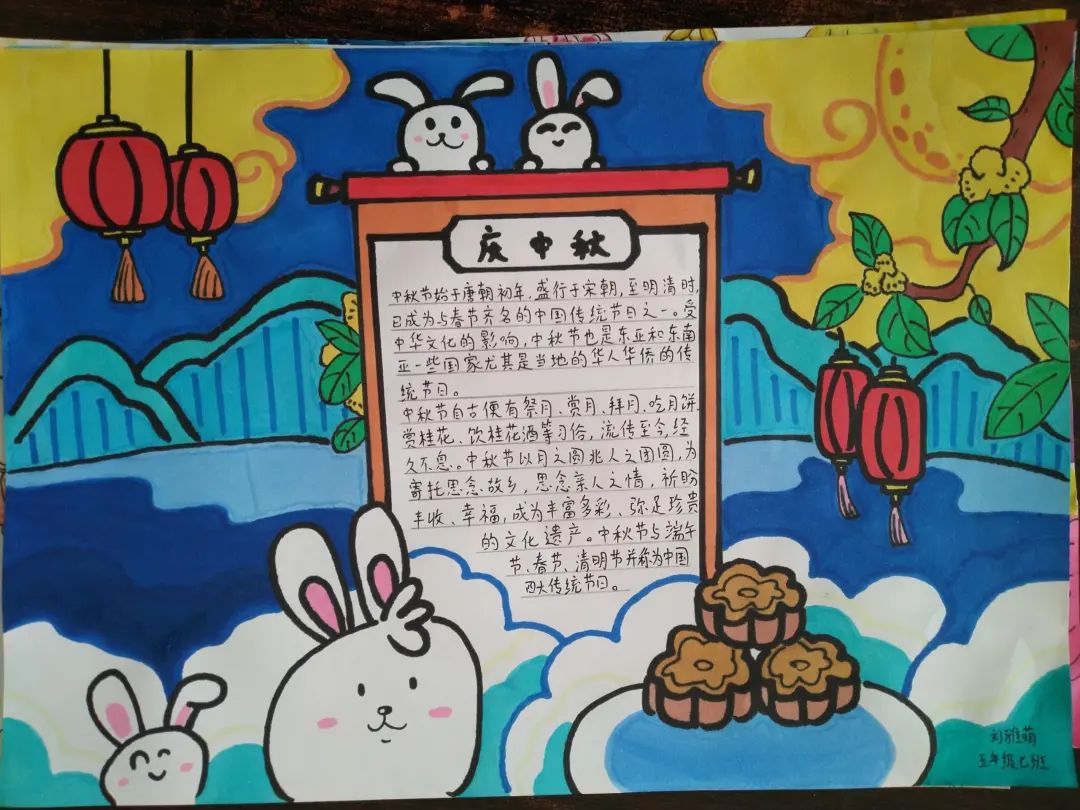 庆中秋
中秋节始于唐朝初年,盛行于宋朝,至明清时,
已成为与春节齐名的中国传统节日之一。受
中华文化的影响,中秋节也是东亚和东南
亚一些国家尤其是当地的华人华侨的传
统节日。
中秋节自古便有祭月、赏月、拜月、吃月饼、
赏桂花、饮桂花酒等习俗,流传至今,经
久不息。中秋节以月之圆兆人之团圆,为
寄托思念故乡,思念亲人之情,祈盼
丰收、幸福,成为丰富多彩、弥足珍贵
的文化遗产。中秋节与端午
节、春节、清明节并称为中国
四大传统节日。
刘雅萌
五年级七班